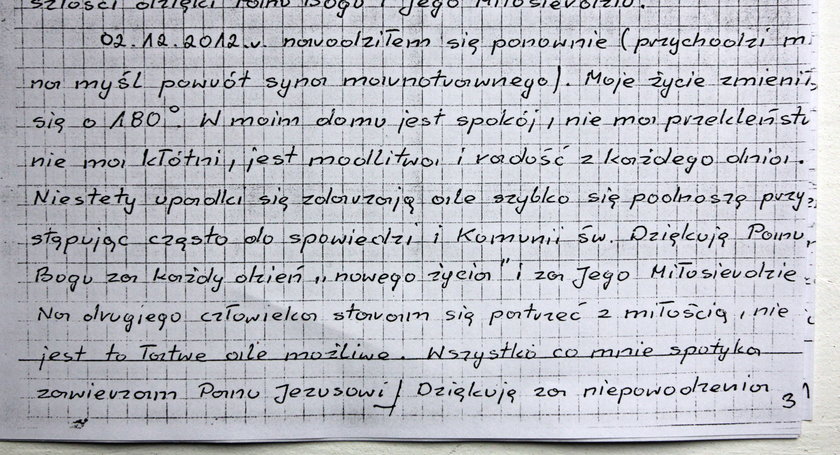 szłości dzięki Panu Bogu i Jego Miłosierdziu.
02.12.2012.r. narodziłem się ponownie (przychodzi m
na myśl powrót syna marnotrawnego). Moje życie zmienił
się o 180°. W moim domu jest spokój, nie ma przekleństw
nie ma kłótni, jest modlitwa i radość z każdego dnia.
Niestety upadki się zdarzają ale szybko się podnoszę przy-
stępując często do spowiedzi i Komunii św. Dziękuję Panu
Bogu za każdy dzień „nowego życia" i za Jego Miłosierdzie.
Na drugiego człowieka staram się patrzeć z miłością, nie
jest to łatwe ale możliwe. Wszystko co mnie spotyka
zawierzam Panu Jezusowi/ Dziękuję za niepowodzenia
3